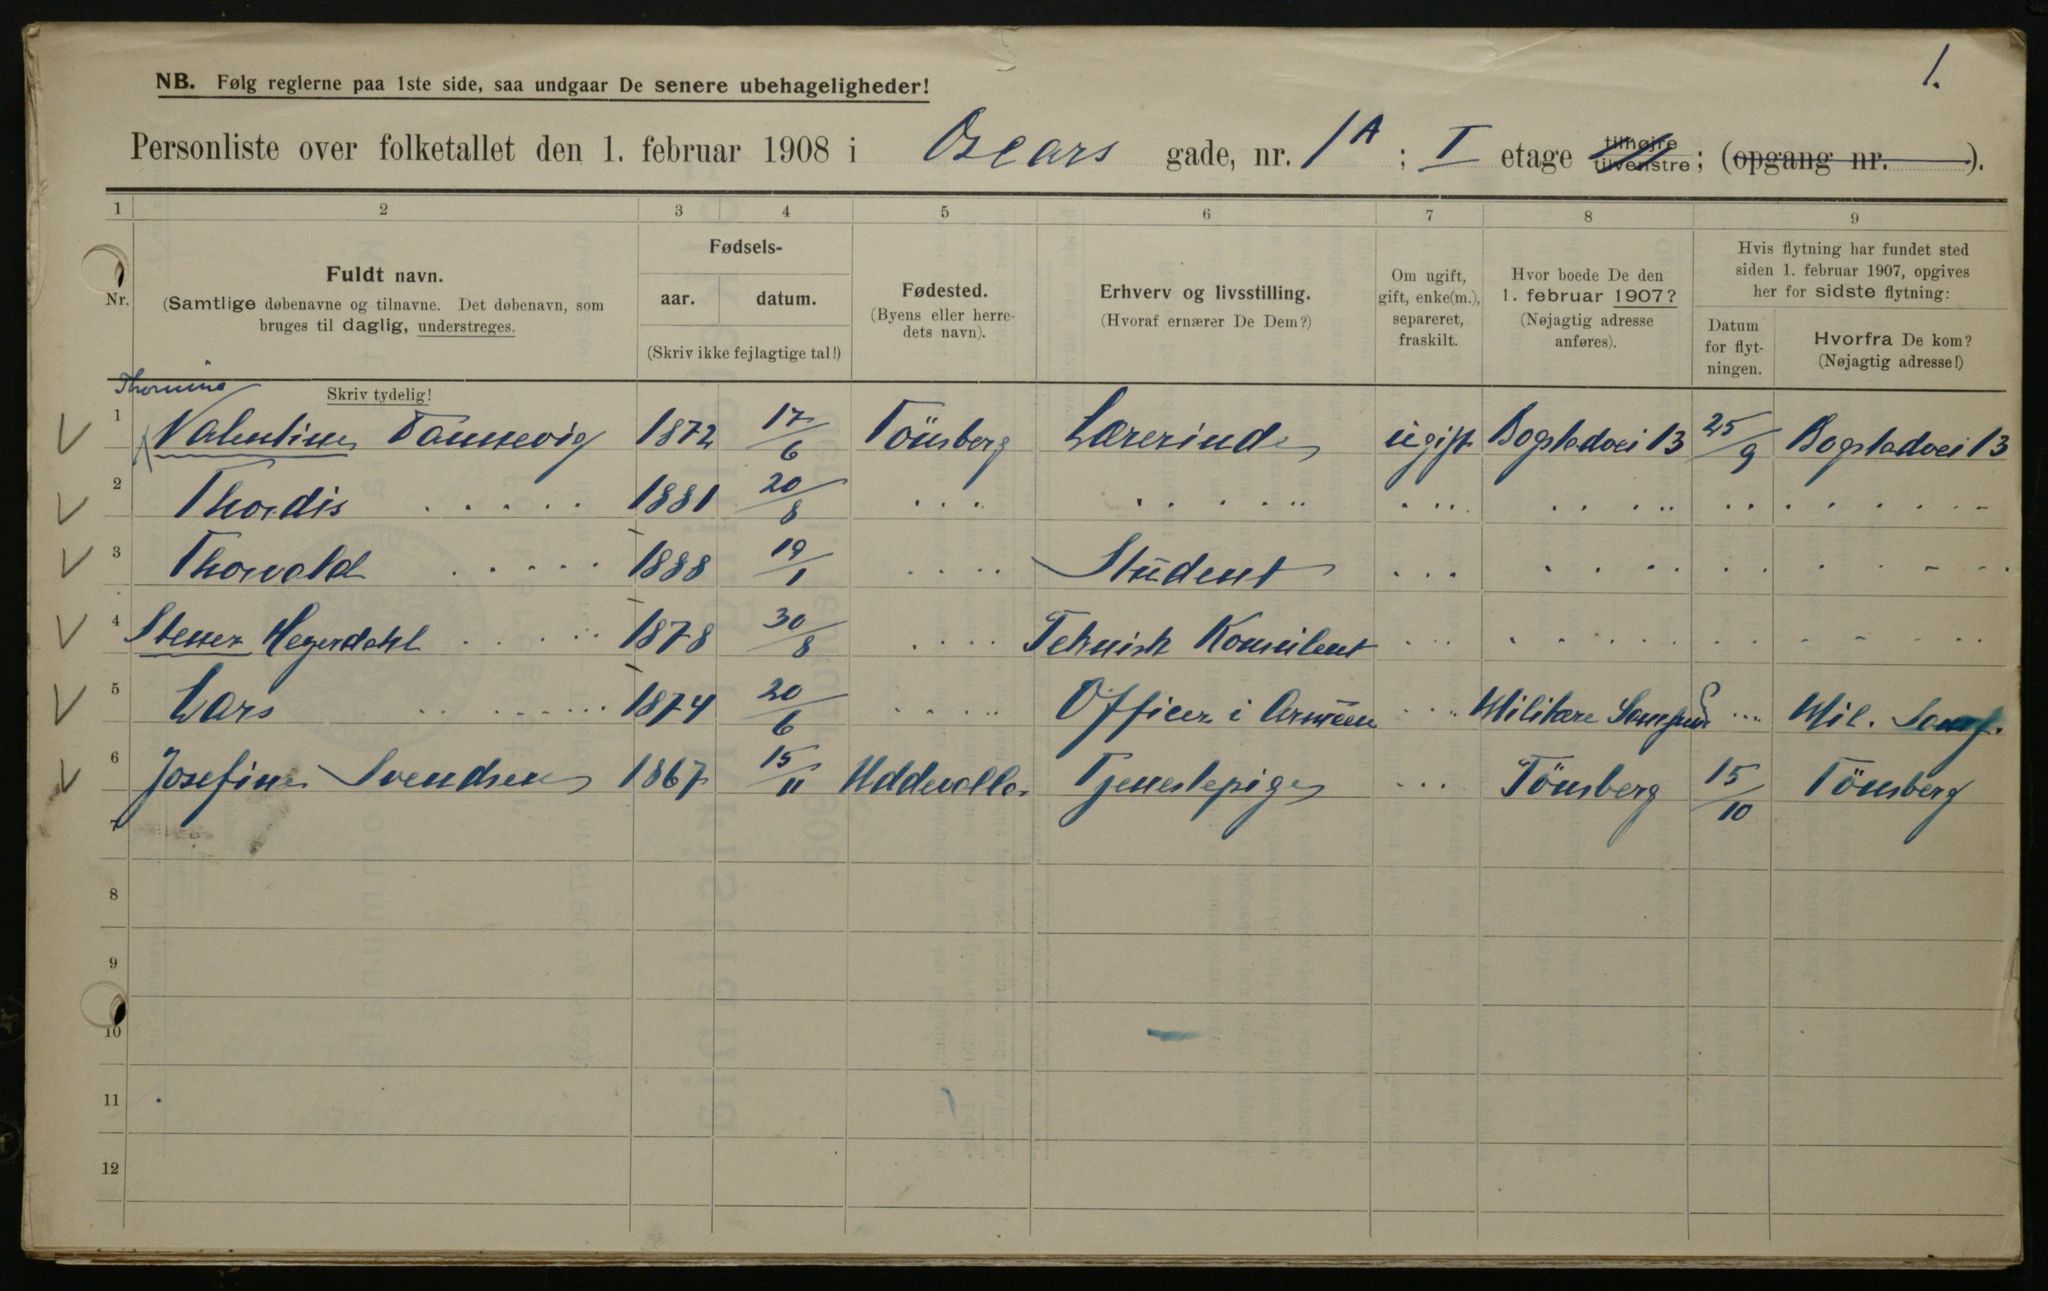 1.
NB. Følg reglerne paa 1ste side, saa undgaar De senere ubehageligheder!
Personliste over folketallet den 1. februar 1908 i Oscars gade, nr. 1A ; I etage tilhøjre tilvenstre ; (opgang nr. ).
1 2 3 4 5 6 7 8 9
Nr.
Fuldt navn.
(Samtlige døbenavne og tilnavne. Det døbenavn, som
bruges til daglig, understreges.
Skriv tydelig!
Fødsels-
aar. datum.
(Skriv ikke fejlagtige tal!)
Fødested.
(Byens eller herre-
dets navn).
Erhverv og livsstilling.
(Hvoraf ernærer De Dem?)
Om ugift,
gift, enke(m.),
separeret,
fraskilt.
Hvor boede De den
1. februar 1907?
(Nøjagtig adresse
anføres).
Hvis flytning har fundet sted
siden 1. februar 1907, opgives
her for sidste flytning:
Datum
for flyt-
ningen.
Hvorfra De kom?
(Nøjagtig adresse!)
Thomine
1 Valentine Tannevig 1872 17/6 Tönsberg Lærerinde ugift Bogstadvei 13 25/9 Bogstadvei 13
2 Thordis . . . . . 1881 20/8 . . . . . . . . . . . . . . . . . . . . . . . .
3 Thorvald . . . . . 1888 19/1 . . . . Student . . . . . . . . . . . . . .
4 Stener Heyerdahl . . . . 1878 30/8 . . . . Teknisk Konsulent . . . . . . . . . . . . . .
5 Lars . . . . . . . 1874 20/6 . . . . . Officer i Armeen . . . Militære Samfund . . . Mil. Samf.
6 Josefine Svendsen 1867 15/11 Uddevalla Tjenestepige . . . Tönsberg 15/10 Tönsberg
7
8
9
10
11
12